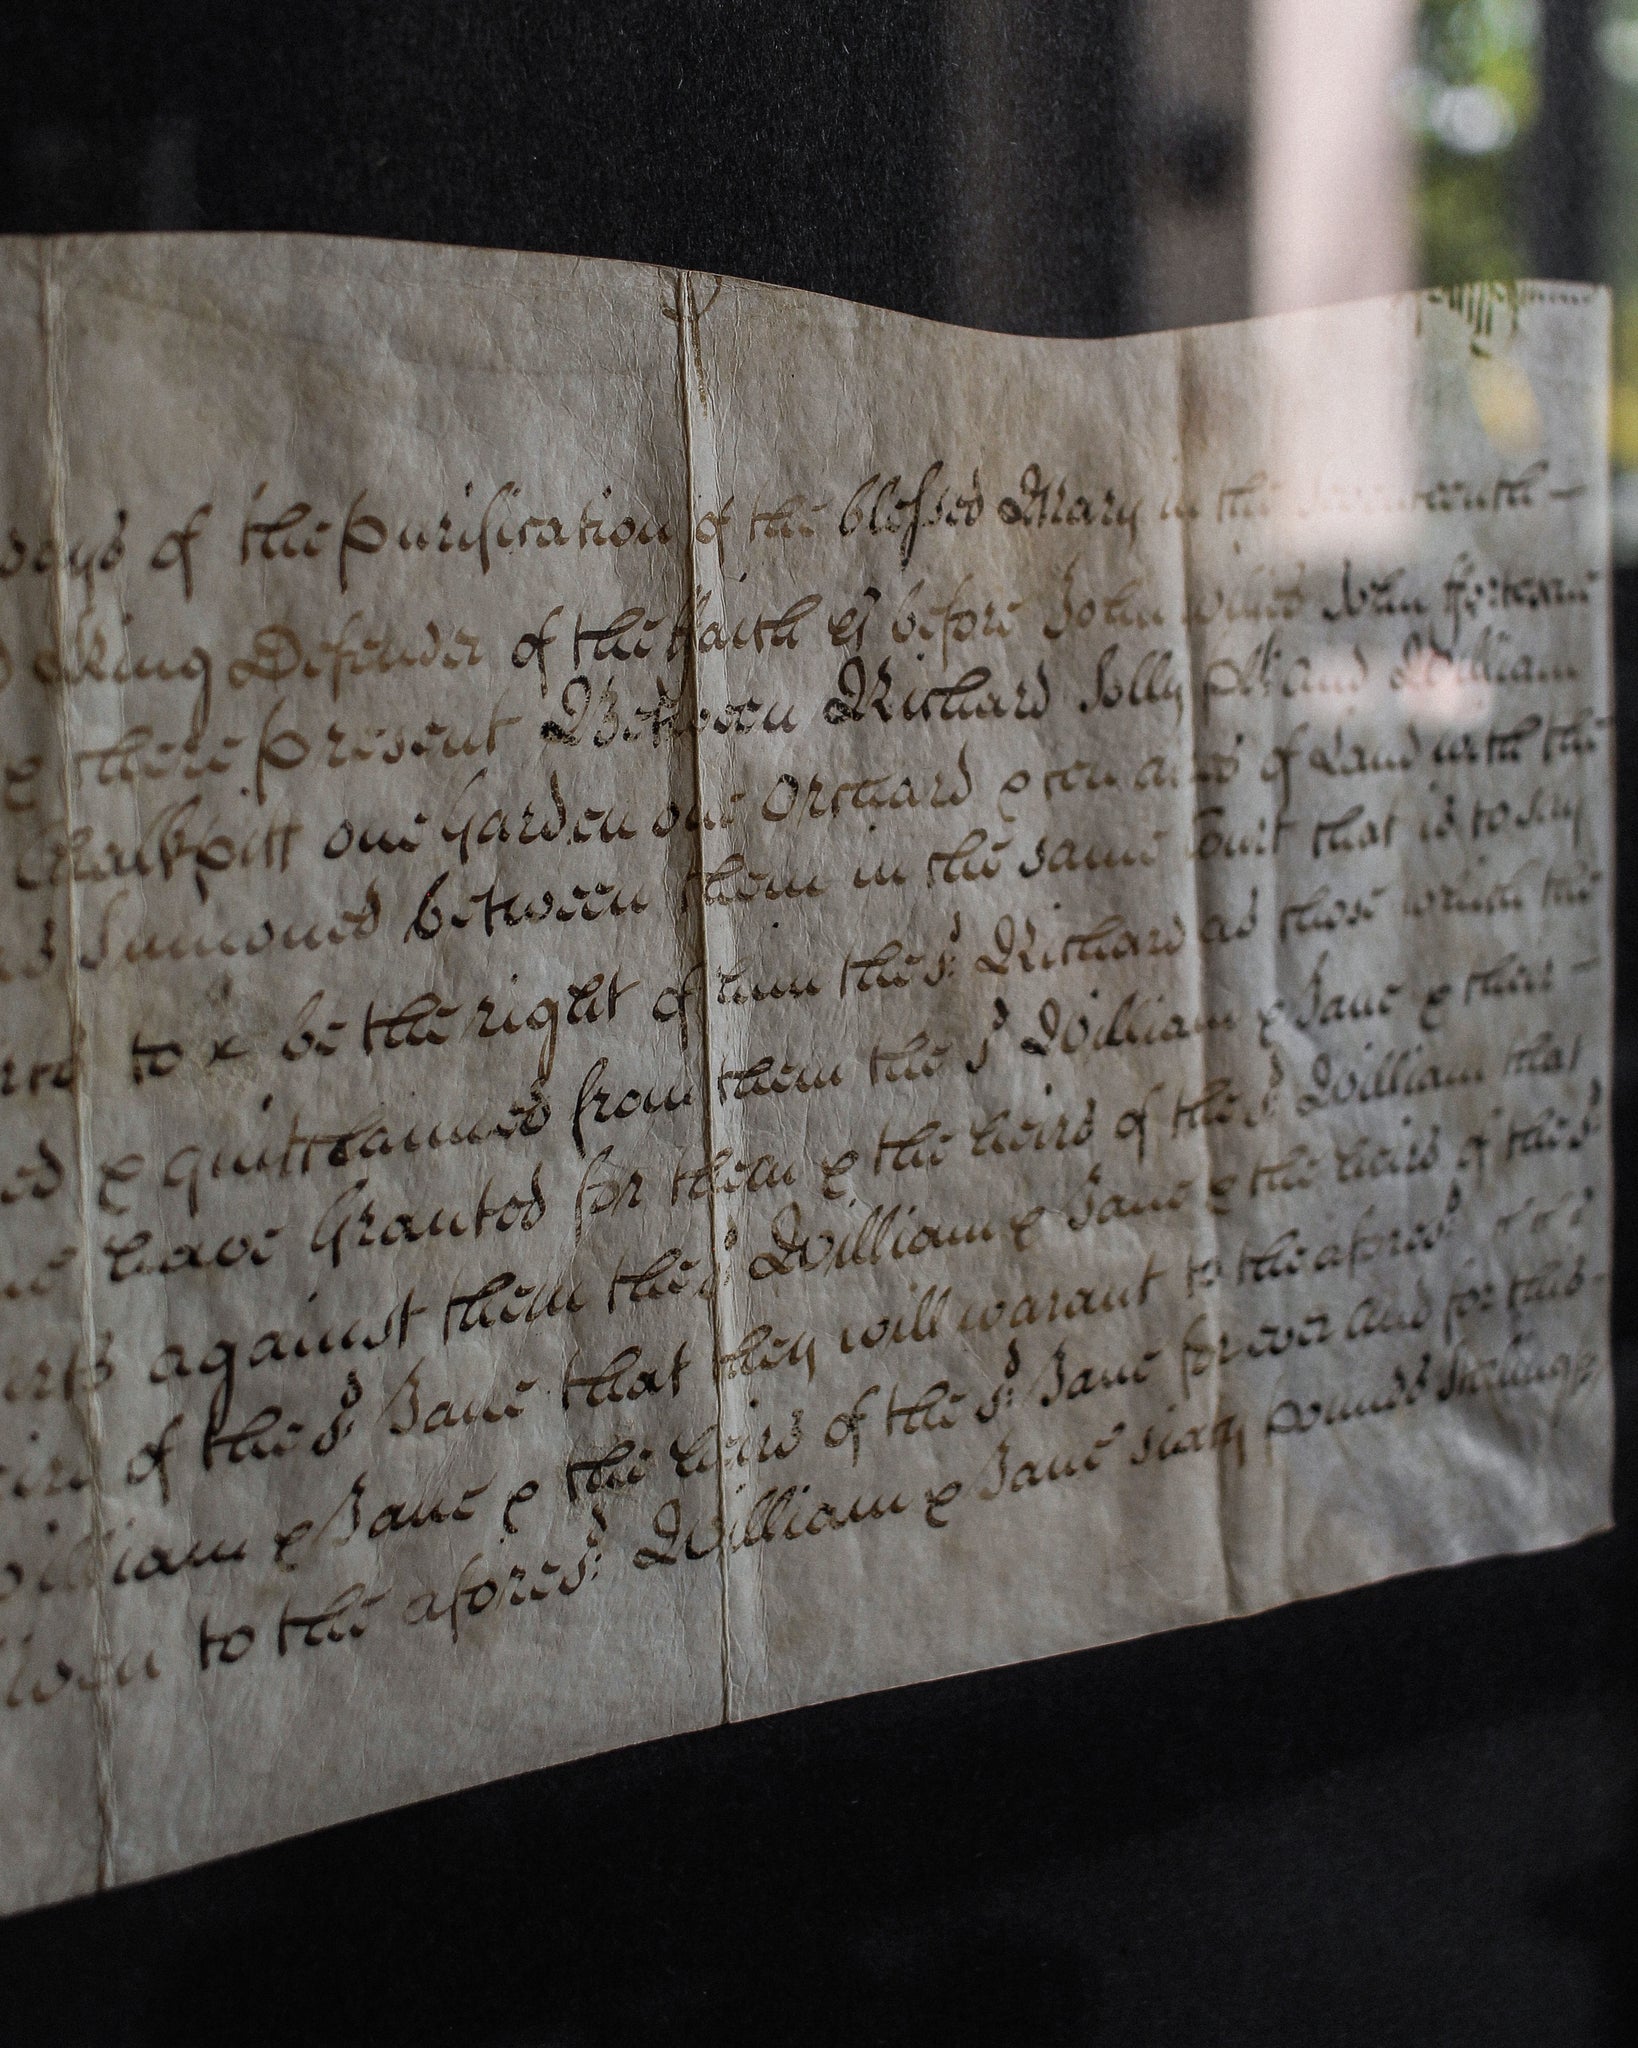 days of the purification of the blessed Mary in the Seventeenth
King Defender of the Faith &c before John Willes John ffortescue
& there present Between Richard Jolly Plt and William
Chalkpitt one Garden one Orchard & ten acres of Land with the
Sumoned between them in the same Court that is to say
to be the right of him the sd. Richard as those which the
ed & quittclaimed from them the sd William & Jane & their
have Granted for them & the heirs of the sd. William that
against them the sd William & Jane & the heirs of the sd.
of the sd. Jane that they will warant to the aforesd.
William & Jane & the heirs of the sd. Jane for ever and for this
to the aforesd. William & Jane sixty pounds Sterling